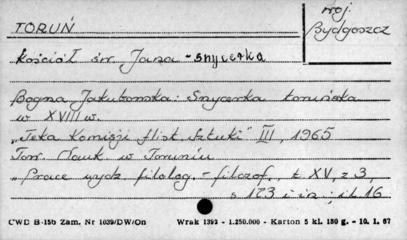 TORUŃ
woj.
Bydgoszcz
Kościół św. Jana - snycerka
Bogna Jakubowska: Snycerka toruńska
w XVIII w.
„Teka Komisji Hist. Sztuki" III, 1965
Tow. Nauk. w Toruniu
„Prace wydz. filolog. - filozof., t. XV, z 3,
s 123 i in; il. 16
CWD B-15b Zam. Nr 1039/DW/On Wrak 1392 - 1.250.000 - Karton 5 kl. 180 g. - 10. 1. 67